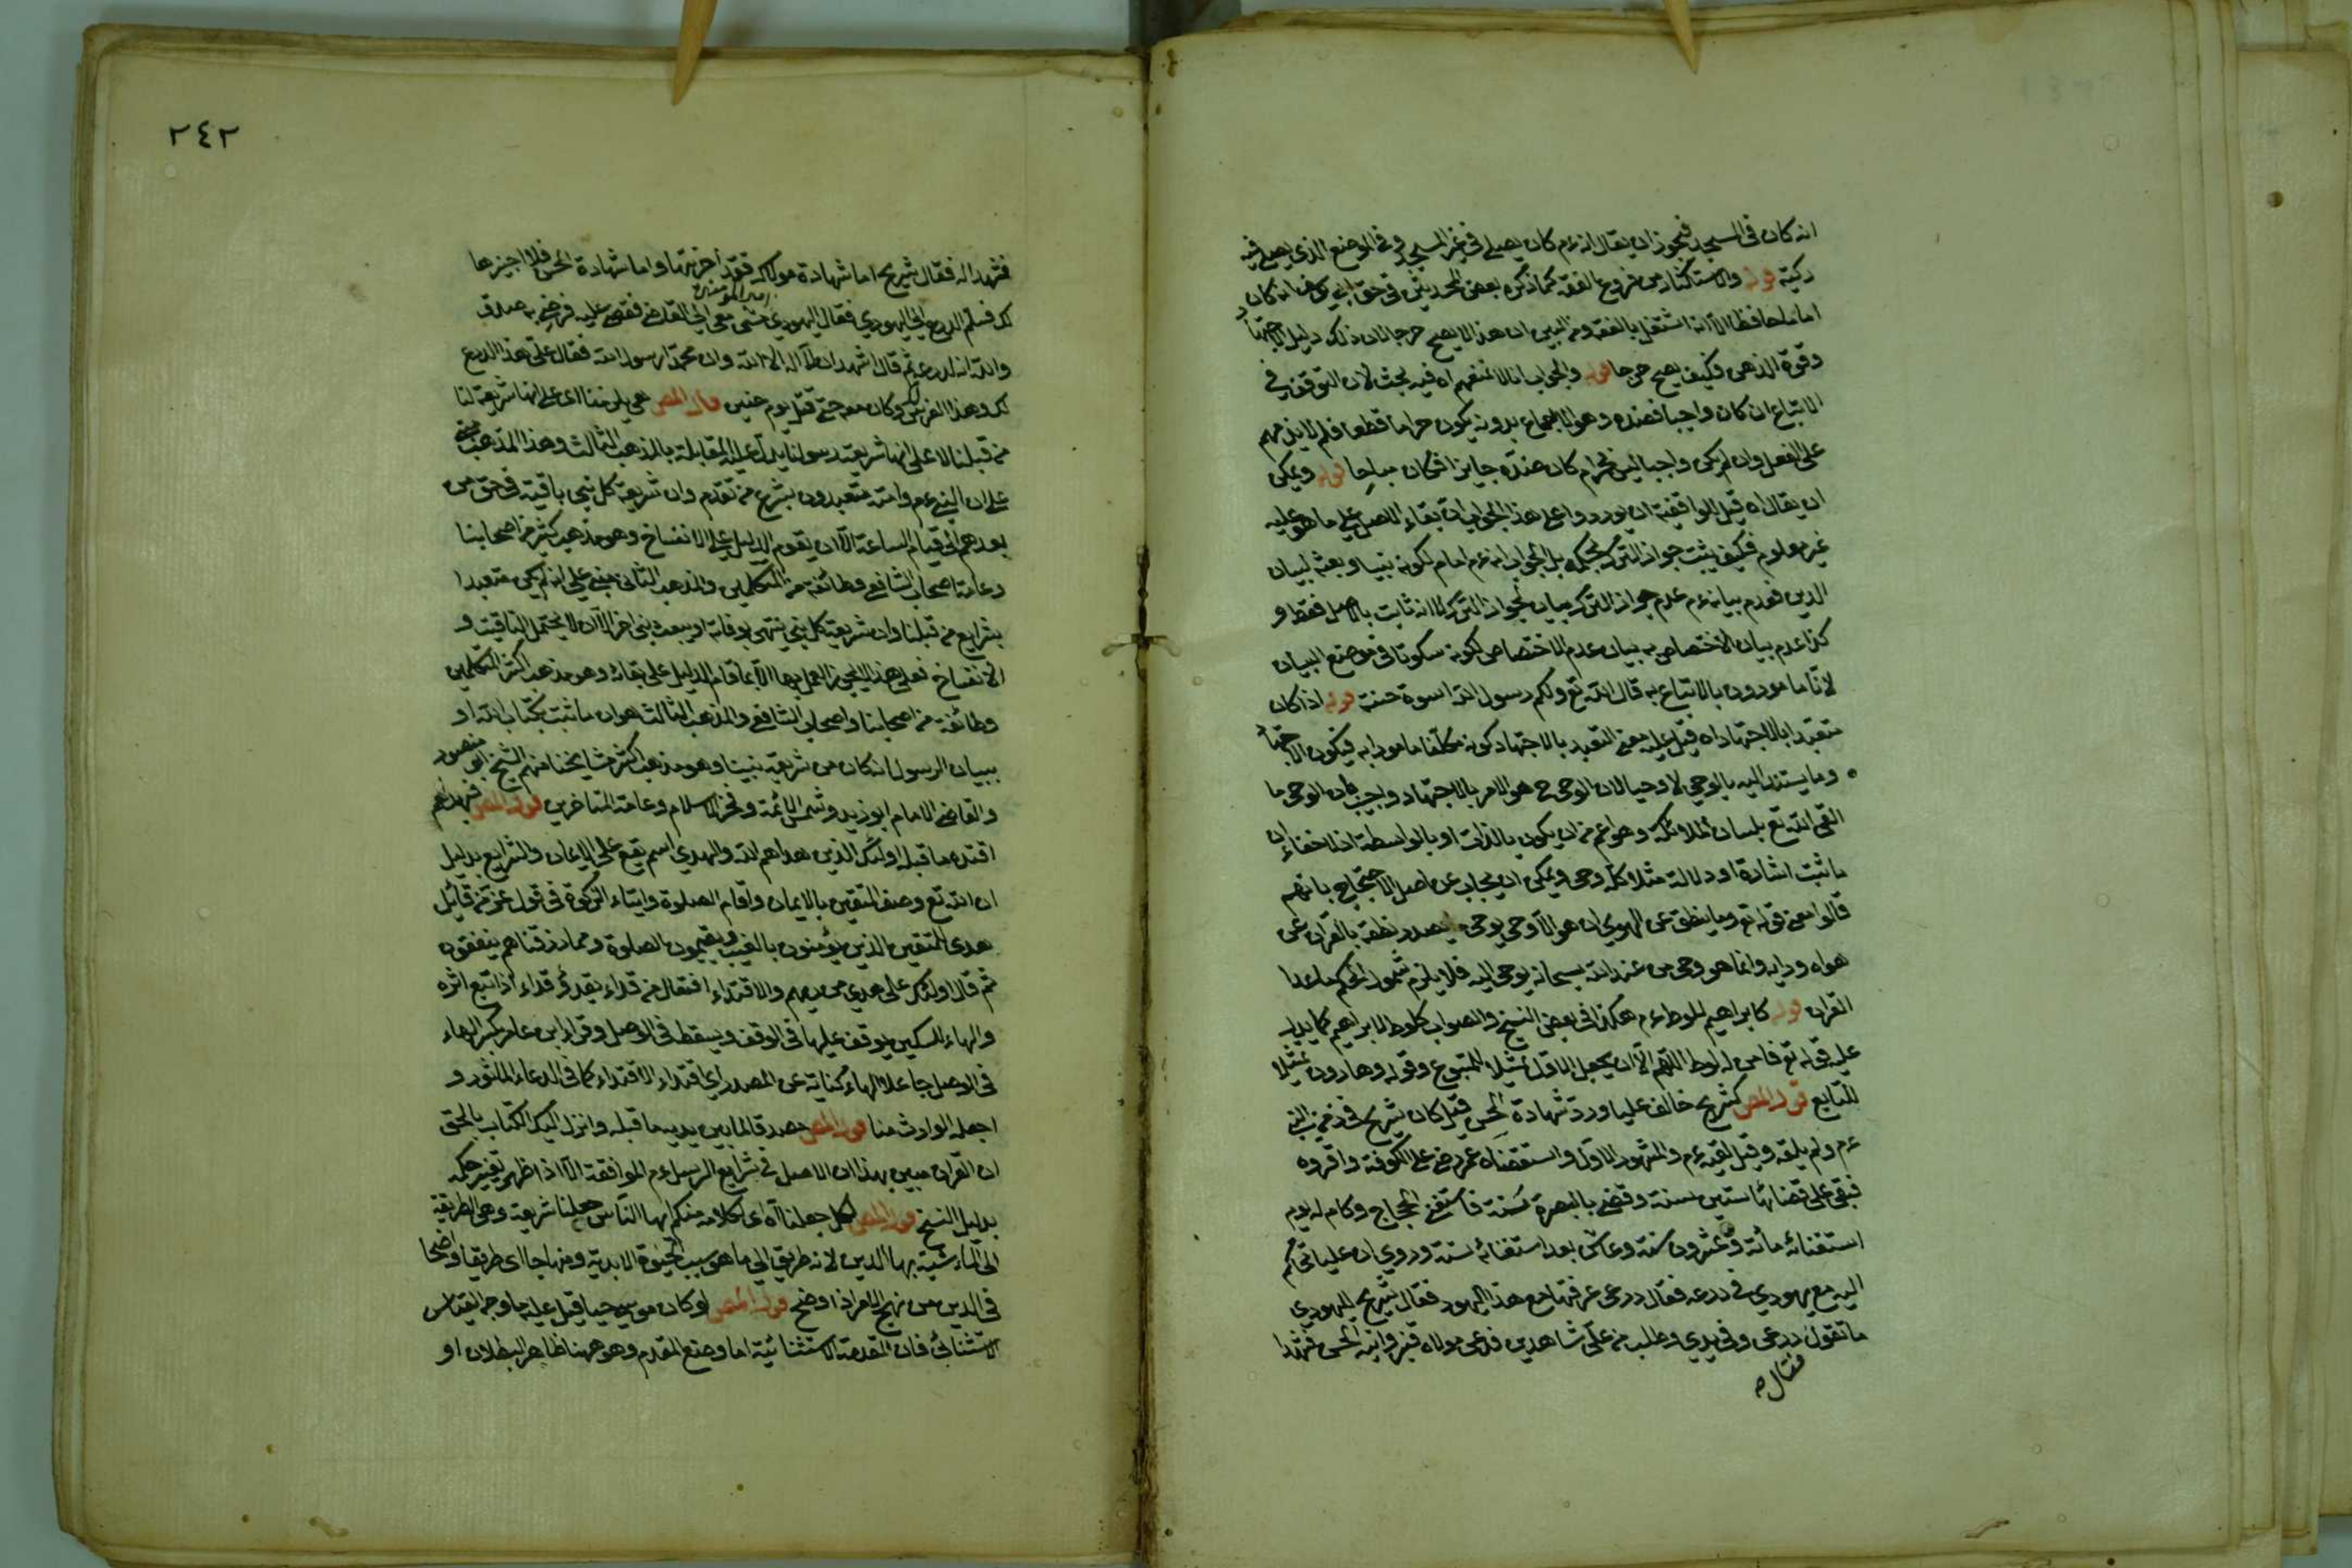 انه كان فى المسجد فيجوز ان يقال انه ءم كان يصلى فى غير المسجد وفى الموضع الذى يصلى فيه
ركية قوله والاستكثار من فروع الفقه كما ذكره بعض المحدثين فى حق ابى يوسف انه كان
اماما حافظا الا انه اشتغل بالفقه ومن البين ان هذا لا يصح جرحا لان ذلك دليل الاجتهاد
وقوة الذهن فكيف يصح جرحا قوله والجواب انا لا نفهم اه فيه بحث لان التوقف فى
الاتباع ان كان واجبا فضده وهو الاجماع بدونه يكون حراما قطعا فلم لا يذمهم
على الفعل وان لم يكن واجبا ليس بحرام كان ضده جايزا فكان مباحا قوله ويمكن
ان يقال اه قيل للواقفية ان يوردوا على هذا الجواب ان بقاء الاصل على ما هو عليه
غير معلوم فكيف يثبت جواز الترك بحكمه بل الجواب انه ءم امام لكونه نبيا وبعثه لبيان
الدين فعدم بيانه ءم عدم جواز الترك بيان لجواز الترك لا انه ثابت بالاصل فقط و
كذا عدم بيان الاختصاص به بيان عدم الاختصاص لكونه سكوتا فى موضع البيان
لانا مامورون بالاتباع به قال الله تع ولكم رسول الله اسوة حسنة قوله اذا كان
متعبدا بالاجتهاد اه قيل عليه معنى التعبد بالاجتهاد كونه مكلفا مامورا به فيكون الاجتهاد
وما يستند اليه بالوحى لا وحيا لان الوحى ح هو الامر بالاجتهاد واجيب بان الوحى ما
القى الله تع بلسان الملائكة وهو اعم من ان يكون بالذات او بالواسطة اذ لا خفاء ان
ما ثبت اشارة او دلالة مثلا كله وحى ويمكن ان يجاب عن اصل الاحتجاج بانهم
قالوا معنى قوله تع وما ينطق عن الهوى ان هو الا وحى يوحى يصدر نطقه بالقرآن عن
هواه ورايه وانما هو وحى من عند الله سبحانه يوحى اليه فلا يلزم شمول الحكم ما عدا
القرآن قوله كابراهيم للوط ءم هكذا فى بعض النسخ والصواب كلوط لابراهيم كما يدل
عليه قوله تع فامن له لوط اللهم الا ان يجعل الاول تمثيلا للمتبوع وقوله وهارون تمثيلا
للتابع قول المص كشريح خالف عليا ورد شهادة الحسن قيل كان شريح فى زمن النبى
ءم ولم يلقه وقيل لقيه ءم والمشهور الاول واستقضاه عمر رضى على الكوفة واقروه
فبقى على قضائها ستين سنة وقضى بالبصرة سنة فاستعفى الحجاج وكام له يوم
استعفائه مائة وعشرون سنة وعاش بعد استعفائه سنة وروى ان عليا تحاكم
اليه مع يهودى فى درعه فقال درعى عرفتها مع هذا اليهود فقال شريح لليهودى
ما تقول درعى وفى يدى وطلب من على شاهدين فدعى مولاه قنبر وابنه الحسن فشهدا
فقال ص
٢٤٢
فشهدا له فقال شريح اما شهادة مولاك فقد اجزتها واما شهادة الحسن فلا اجيزها
امير المؤمنين
لك فسلم الدرع الى اليهودى فقال اليهودى مشى معى الى القاضى فقضى عليه فرضى به صدق
والله انه لدرعه ثم قال اشهد ان لا اله الا الله وان محمدا رسول الله فقال على هذا الدرع
لك وهذا الفرس لك وكان معه حتى قتل يوم حنين قال المص هى يلزمنا اى على انها شريعة لنا
من قبلنا لا على انها شريعة رسولنا يدل عليه المقابلة بالمذهب الثالث وهذا المذهب مبنى
على ان النبى ءم وامته متعبدون بشرع من تقدم وان شريعة كل نبى باقية فى حق من
بعدهم الى قيام الساعة الا ان يقوم الدليل على الانفساخ وهو مذهب كثير من اصحابنا
وعامة اصحاب الشافعى وطائفة من المتكلمين والمذهب الثانى مبنى على انه لم يكن متعبدا
بشرايع من قبلنا وان شريعة كل نبى ينتهى بوفاته او يبعث نبى اخر الا ان لا يحتمل التاقيت و
الانفساخ فعلى هذا لا يجوز العمل بها الا بما قام الدليل على بقائه وهو مذهب اكثر المتكلمين
وطائفة من اصحابنا واصحاب الشافعى والمذهب الثالث هو ان ما ثبت بكتاب الله او
ببيان الرسول انه كان من شريعة نبينا وهو مذهب اكثر مشايخنا منهم الشيخ ابى منصور
والقاضى الامام ابو زيد وشمس الائمة وفخر الاسلام وعامة المتاخرين قول المص فبهداهم
اقتده ما قبله اولئك الذين هداهم الله والهدى اسم يقع على الايمان والشرايع بدليل
ان الله تع وصف المتقين بالايمان واقام الصلوة وايتاء الزكوة فى قول عز من قائل
هدى للمتقين الذين يؤمنون بالغيب ويقيمون الصلوة ومما رزقناهم ينفقون
ثم قال اولئك على هدى من ربهم والاقتداء افتعال من قداء يقدو قداء اذا تبع اثره
والهاء للسكين يوقف عليها فى الوقف ويسقط فى الوصل وقراء ابن عامر بكسر الهاء
فى الوصل جاعلا الهاء كناية عن المصدر اى اقتداء الاقتداء كما فى الدعاء الماثور و
اجعله الوارث منا قول المص مصدقا لما بين يديه ما قبله وانزل اليك الكتاب بالحق
ان القرآن مبين بهذا ان الاصل فى شرايع الرسل ءم الموافقة الا اذا ظهر تغيير حكمه
بدليل النسخ قول المص لكل جعلنا اه اى لكل امة منكم ايها الناس جعلنا شريعة وهى الطريقة
الى الماء شبه بها الدين لانه طريق الى ما هو سبب الحيوة الابدية ومنهاجا اى طريقا واضحا
فى الدين من نهج الامر اذا وضح قول المص لو كان موسى حيا قيل عليه ما وجه القياس
الاستثنائى فان المقدمة الاستثنائية اما وضع المقدم وهو ههنا ظاهر البطلان او